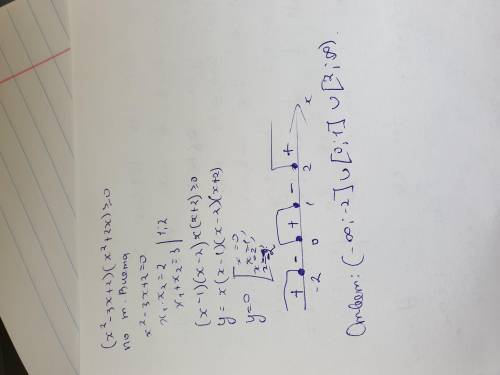 (x²-3x+2)(x²+2x)≥0
По т. Виета
x²-3x+2=0
x₁·x₂=2
x₁+x₂=3 | 1,2
(x-1)(x-2)x(x+2)≥0
y=x(x-1)(x-2)(x+2)
y=0 [x=0,
x=1,
x=2,
x=-2
+ - + - +
-2 0 1 2 x
Ответ: (-∞;-2]∪[0;1]∪[2;∞).